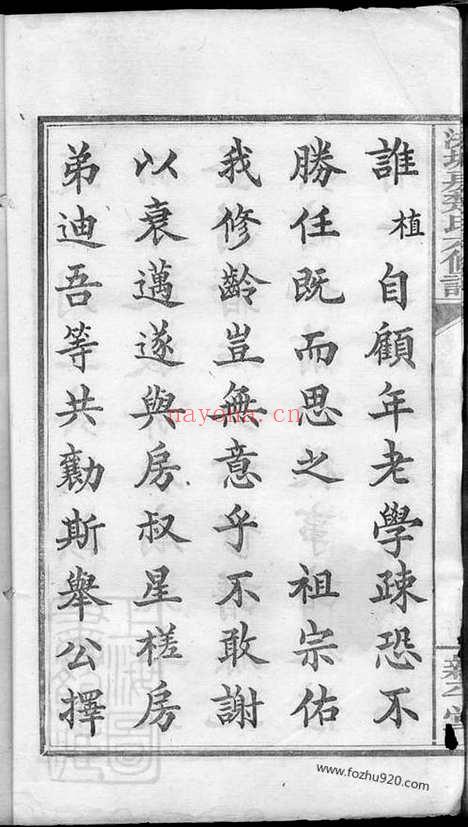 誰植自顧年老學疎恐不
勝任既而思之　祖宗佑
我修齡豈無意乎不敢謝
以衰邁遂與房叔星槎房
弟迪吾等共勷斯舉公擇
nayona.cn
www.fozhu920.com